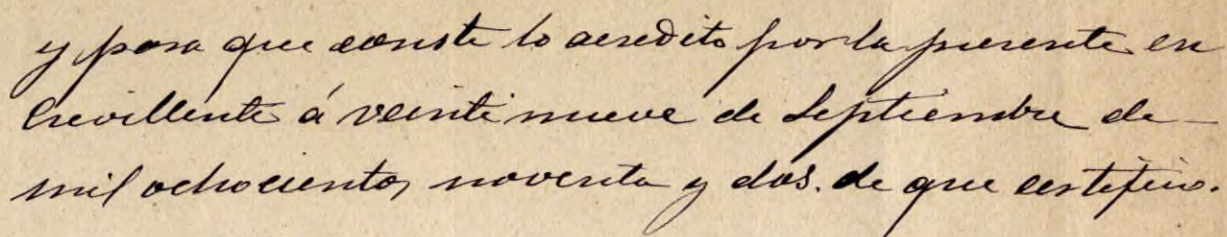 y para que conste lo acredito por la presente en
Crevillente á veinte nueve de Septiembre de
mil ochocientos noventa y dos. de que certifico.